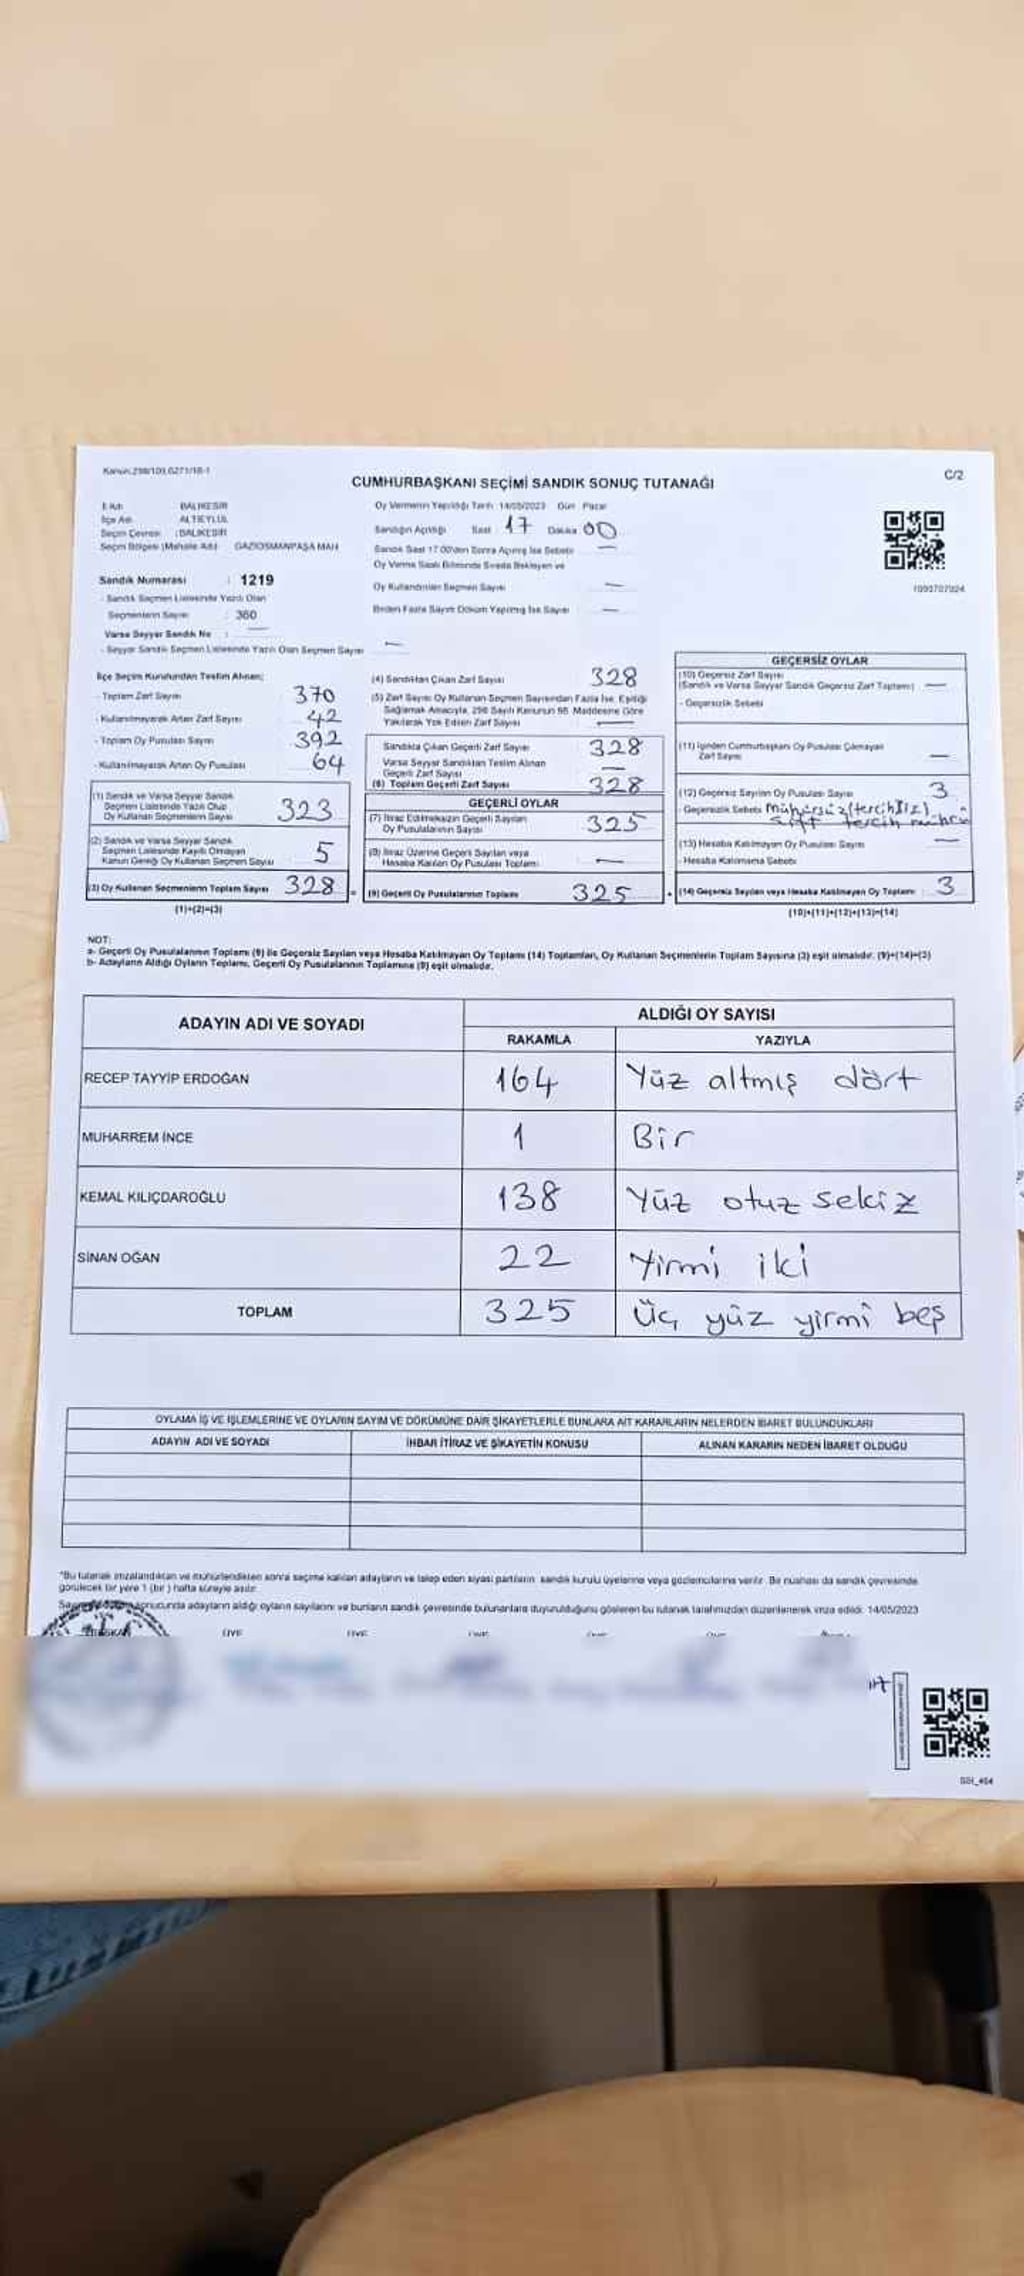 Kanun:298/109,6271/18-1
C/2
CUMHURBAŞKANI SEÇİMİ SANDIK SONUÇ TUTANAĞI
İl Adı BALIKESİR
İlçe Adı ALTIEYLÜL
Seçim Çevresi :BALIKESİR
Seçim Bölgesi (Mahalle Adı) GAZİOSMANPAŞA MAH
Oy Vermenin Yapıldığı Tarih 14/05/2023 Gün Pazar
Sandığın Açıldığı Saat 17 Dakika 00
Sandık Saat 17.00'den Sonra Açılmış İse Sebebi —
Oy Verme Saati Bitiminde Sırada Bekleyen ve
Oy Kullandırılan Seçmen Sayısı —
Birden Fazla Sayım Döküm Yapılmış İse Sayısı —
Sandık Numarası : 1219
- Sandık Seçmen Listesinde Yazılı Olan
Seçmenlerin Sayısı : 360
Varsa Seyyar Sandık No : —
- Seyyar Sandık Seçmen Listesinde Yazılı Olan Seçmen Sayısı —
İlçe Seçim Kurulundan Teslim Alınan;
- Toplam Zarf Sayısı 370
- Kullanılmayarak Artan Zarf Sayısı 42
- Toplam Oy Pusulası Sayısı 392
- Kullanılmayarak Artan Oy Pusulası 64
(1) Sandık ve Varsa Seyyar Sandık
Seçmen Listesinde Yazılı Olup
Oy Kullanan Seçmenlerin Sayısı 323
(2) Sandık ve Varsa Seyyar Sandık
Seçmen Listesinde Kayıtlı Olmayan
Kanun Gereği Oy Kullanan Seçmen Sayısı 5
(3) Oy Kullanan Seçmenlerin Toplam Sayısı 328 =
(1)+(2)=(3)
(4) Sandıktan Çıkan Zarf Sayısı 328
(5) Zarf Sayısı Oy Kullanan Seçmen Sayısından Fazla İse, Eşitliği
Sağlamak Amacıyla, 298 Sayılı Kanunun 98. Maddesine Göre
Yakılarak Yok Edilen Zarf Sayısı —
Sandıkta Çıkan Geçerli Zarf Sayısı 328
Varsa Seyyar Sandıktan Teslim Alınan
Geçerli Zarf Sayısı —
(6) Toplam Geçerli Zarf Sayısı 328
GEÇERLİ OYLAR
(7) İtiraz Edilmeksizin Geçerli Sayılan
Oy Pusulalarının Sayısı 325
(8) İtiraz Üzerine Geçerli Sayılan veya
Hesaba Katılan Oy Pusulası Toplamı —
(9) Geçerli Oy Pusulalarının Toplamı 325 +
GEÇERSİZ OYLAR
(10) Geçersiz Zarf Sayısı
(Sandık ve Varsa Seyyar Sandık Geçersiz Zarf Toplamı) —
- Geçersizlik Sebebi
(11) İçinden Cumhurbaşkanı Oy Pusulası Çıkmayan
Zarf Sayısı —
(12) Geçersiz Sayılan Oy Pusulası Sayısı 3
- Geçersizlik Sebebi mühürsüz(tercihsiz)
çift tercih mührü
(13) Hesaba Katılmayan Oy Pusulası Sayısı —
- Hesaba Katılmama Sebebi
(14) Geçersiz Sayılan veya Hesaba Katılmayan Oy Toplamı 3
(10)+(11)+(12)+(13)=(14)
NOT:
a- Geçerli Oy Pusulalarının Toplamı (9) ile Geçersiz Sayılan veya Hesaba Katılmayan Oy Toplamı (14) Toplamları, Oy Kullanan Seçmenlerin Toplam Sayısına (3) eşit olmalıdır. (9)+(14)=(3)
b- Adayların Aldığı Oyların Toplamı, Geçerli Oy Pusulalarının Toplamına (9) eşit olmalıdır.
ADAYIN ADI VE SOYADI
ALDIĞI OY SAYISI
RAKAMLA YAZIYLA
RECEP TAYYİP ERDOĞAN 164 Yüz altmış dört
MUHARREM İNCE 1 Bir
KEMAL KILIÇDAROĞLU 138 Yüz otuz sekiz
SİNAN OĞAN 22 Yirmi iki
TOPLAM 325 Üç yüz yirmi beş
OYLAMA İŞ VE İŞLEMLERİNE VE OYLARIN SAYIM VE DÖKÜMÜNE DAİR ŞİKAYETLERLE BUNLARA AİT KARARLARIN NELERDEN İBARET BULUNDUKLARI
ADAYIN ADI VE SOYADI İHBAR İTİRAZ VE ŞİKAYETİN KONUSU ALINAN KARARIN NEDEN İBARET OLDUĞU
*Bu tutanak imzalandıktan ve mühürlendikten sonra seçime katılan adayların ve talep eden siyasi partilerin sandık kurulu üyelerine veya gözlemcilerine verilir. Bir nüshası da sandık çevresinde
görülecek bir yere 1 (bir) hafta süreyle asılır.
sonucunda adayların aldığı oyların sayılarını ve bunların sandık çevresinde bulunanlara duyurulduğunu gösteren bu tutanak tarafımızdan düzenlenerek imza edildi. 14/05/2023